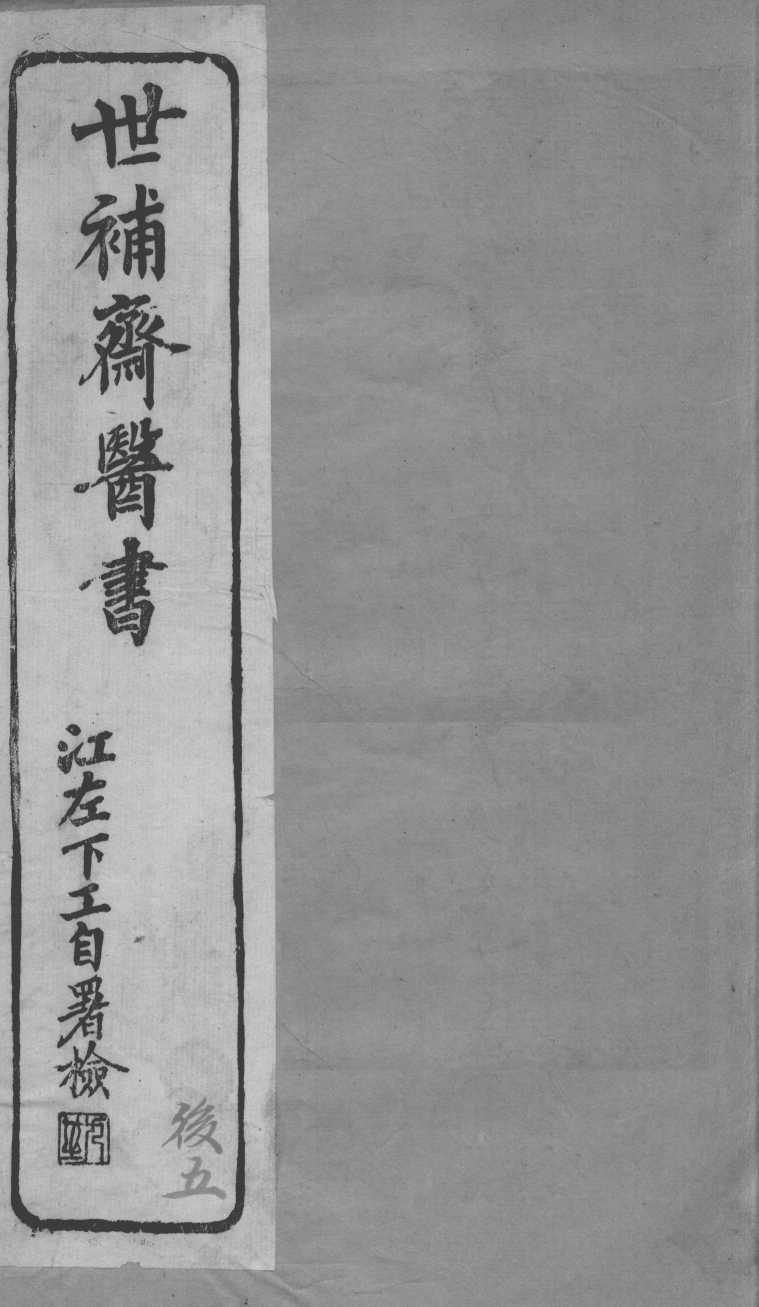 世補齋醫書
江左下工自署檢
後五